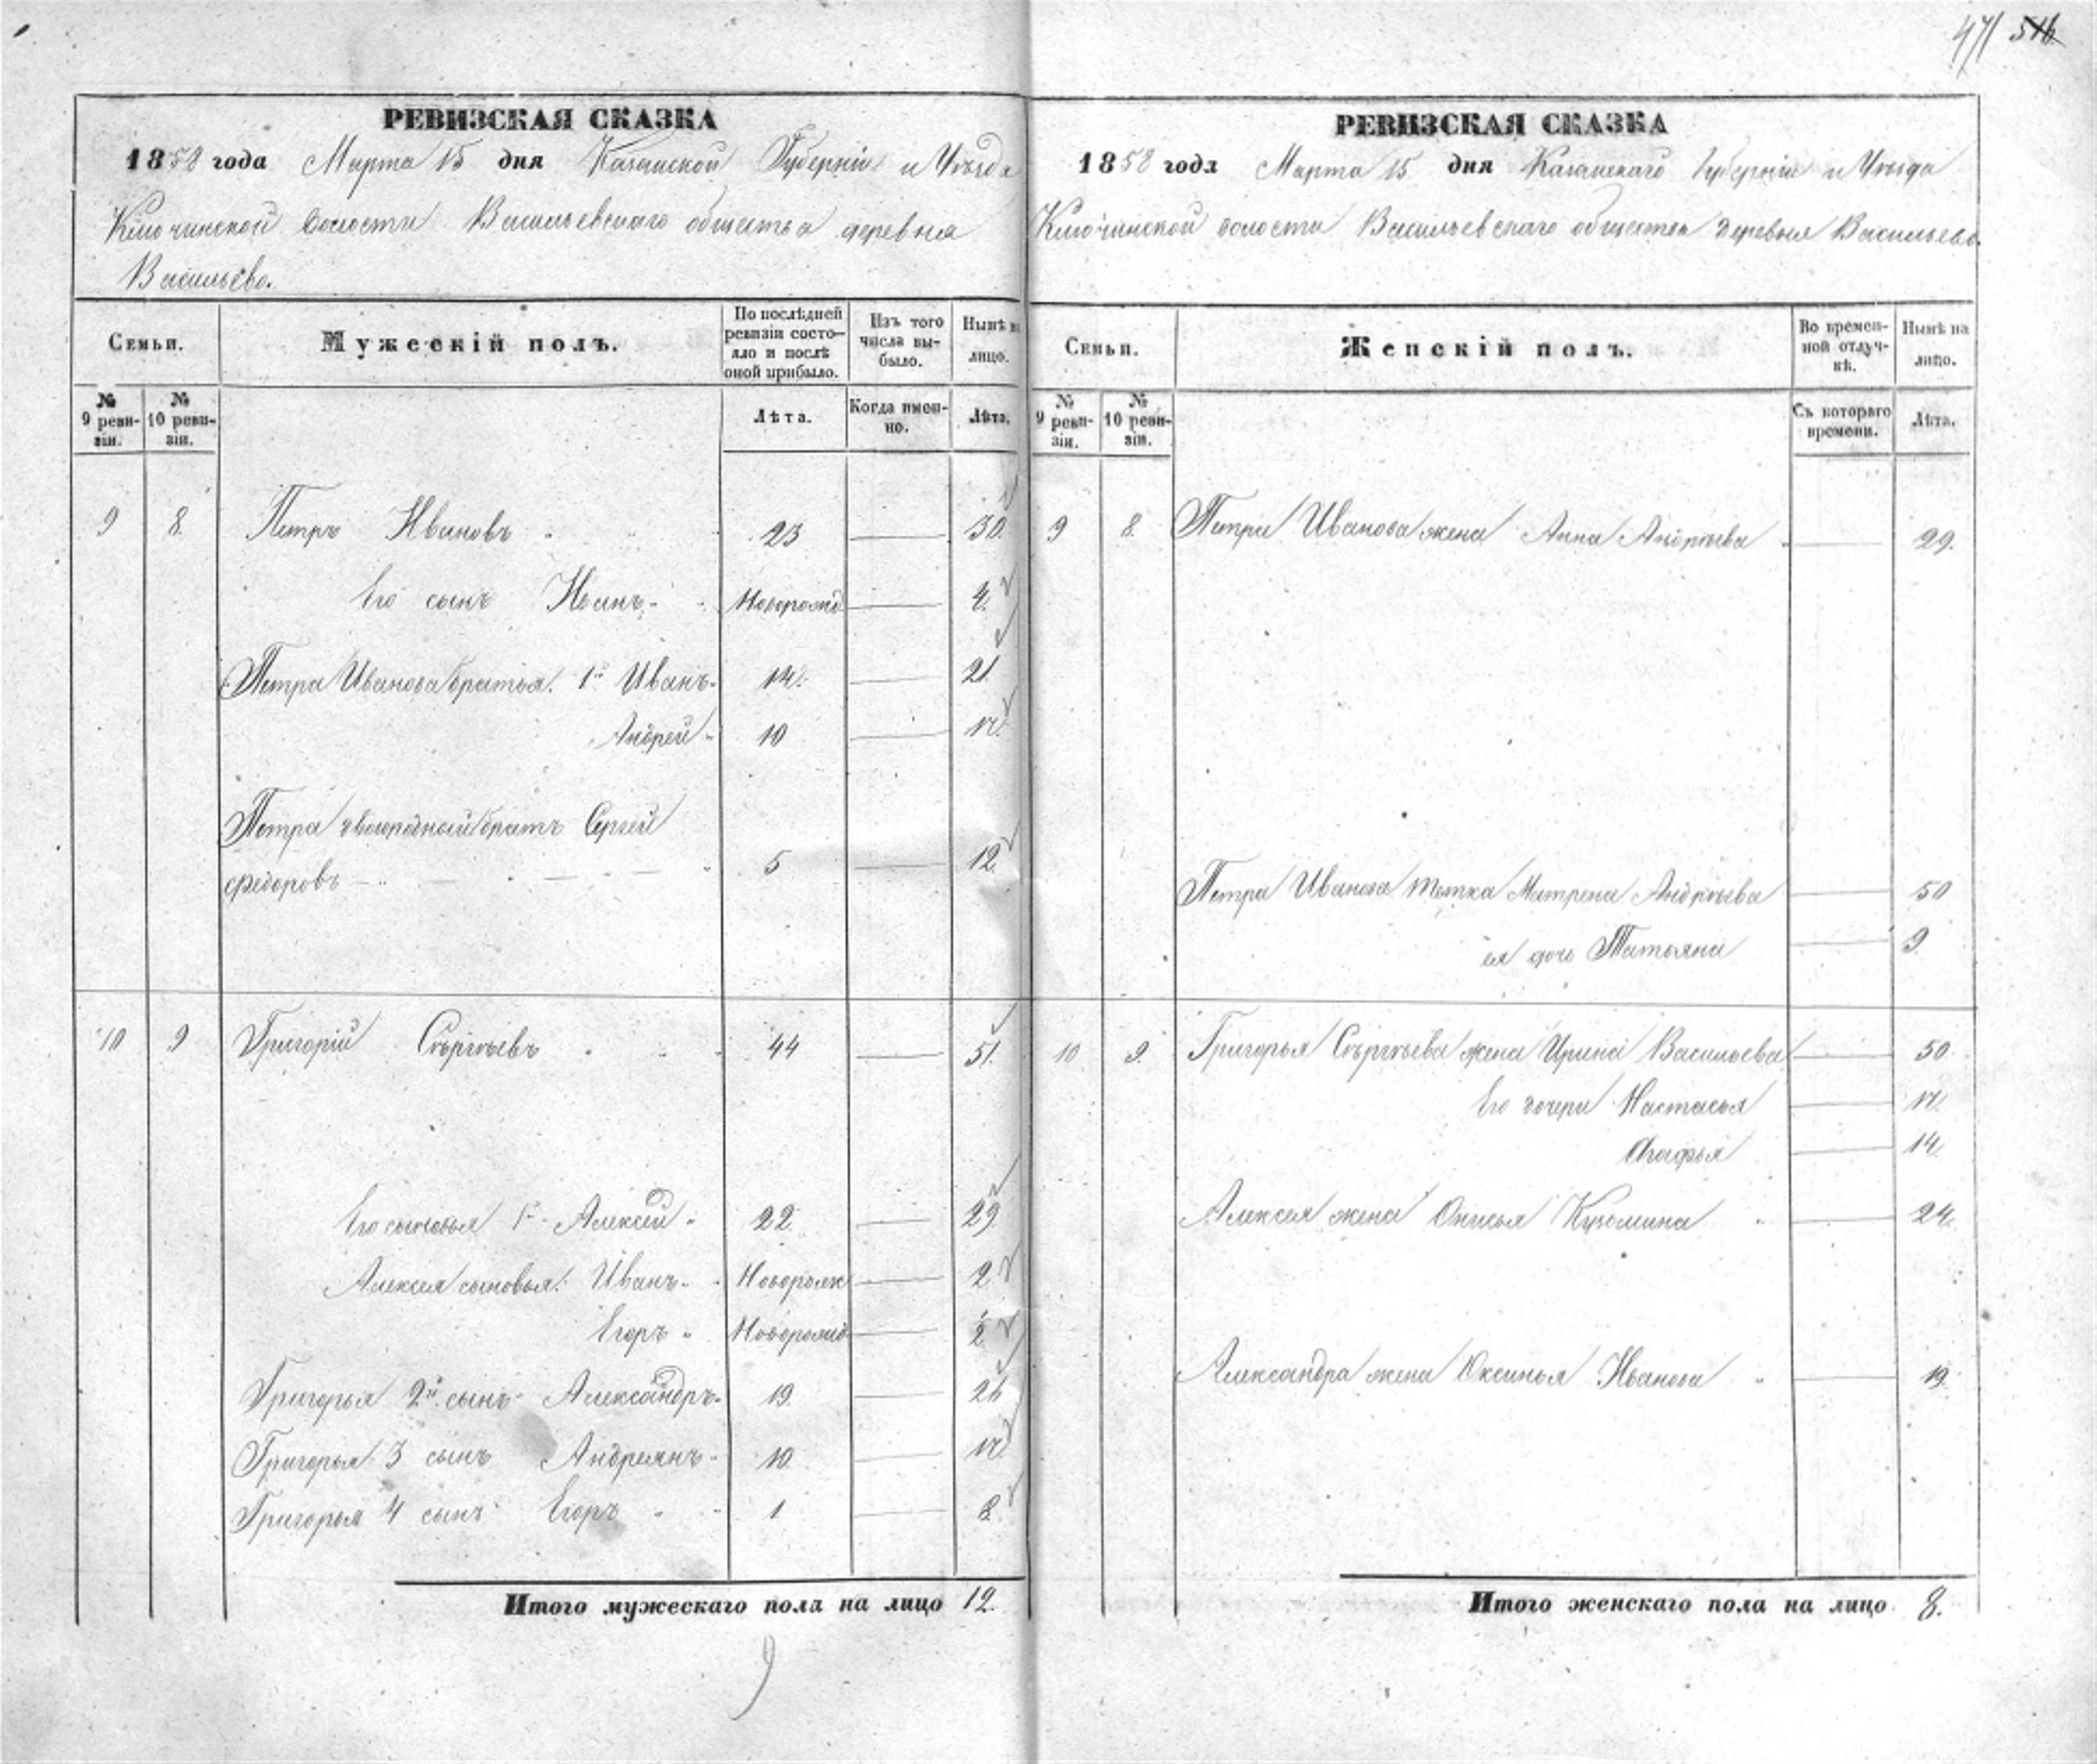 47 516
РЕВИЗСКАЯ СКАЗКА
1858 года Марта 15 дня Казанской Губерніи и Уѣзда
Ключинской волости Васильевскаго общества деревня
Васильево.
Семьи.
Мужескій полъ.
По послѣдней
ревизіи состо-
яло и послѣ
оной прибыло.
Изъ того
числа вы-
было.
Нынѣ на
лицо.
№
9 реви-
зіи.
№
10 реви-
зіи.
Лѣта.
Когда имен-
но.
Лѣта.
9 8 Петръ Ивановъ 23 — 30.
Его сынъ Иванъ Новорожд — 4.
Петра Иванова братья. 1й Иванъ 14. — 21
Андрей 10 — 17.
Петра двоюродный братъ Сергей
Федоровъ 5 — 12
10 9 Григорій Сѣргѣевъ 44 — 51.
Его сыновья 1й Алексѣй 22. — 29.
Алексея сыновья: Иванъ Новорож — 2
Егоръ Новорожд — ½
Григорья 2й сынъ Александръ 19. — 26
Григорья 3 сынъ Андреянъ 10. — 17
Григорья 4 сынъ Егоръ 1 — 8.
Итого мужескаго пола на лицо 12.
РЕВИЗСКАЯ СКАЗКА
1858 года Марта 15 дня Казанскаго Губерніи и Уѣзда
Ключинской волости Васильевскаго общества деревня Васильево.
Семьи.
Женскій полъ.
Во времен-
ной отлуч-
кѣ.
Нынѣ на
лицо.
№
9 реви-
зіи.
№
10 реви-
зіи.
Съ котораго
времени.
Лѣта.
9 8. Петра Иванова жена Анна Андрѣева — 29.
Петра Иванова тетка Матрена Андрѣева — 50
ея дочь Татьяна — 9.
10 9. Григорья Сѣргѣева жена Ирина Васильева — 50
Его дочери Настасья — 17.
Агафья — 14.
Алексея жена Онисья Кузмина — 24.
Александра жена Оксинья Иванова — 19.
Итого женскаго пола на лицо 8.